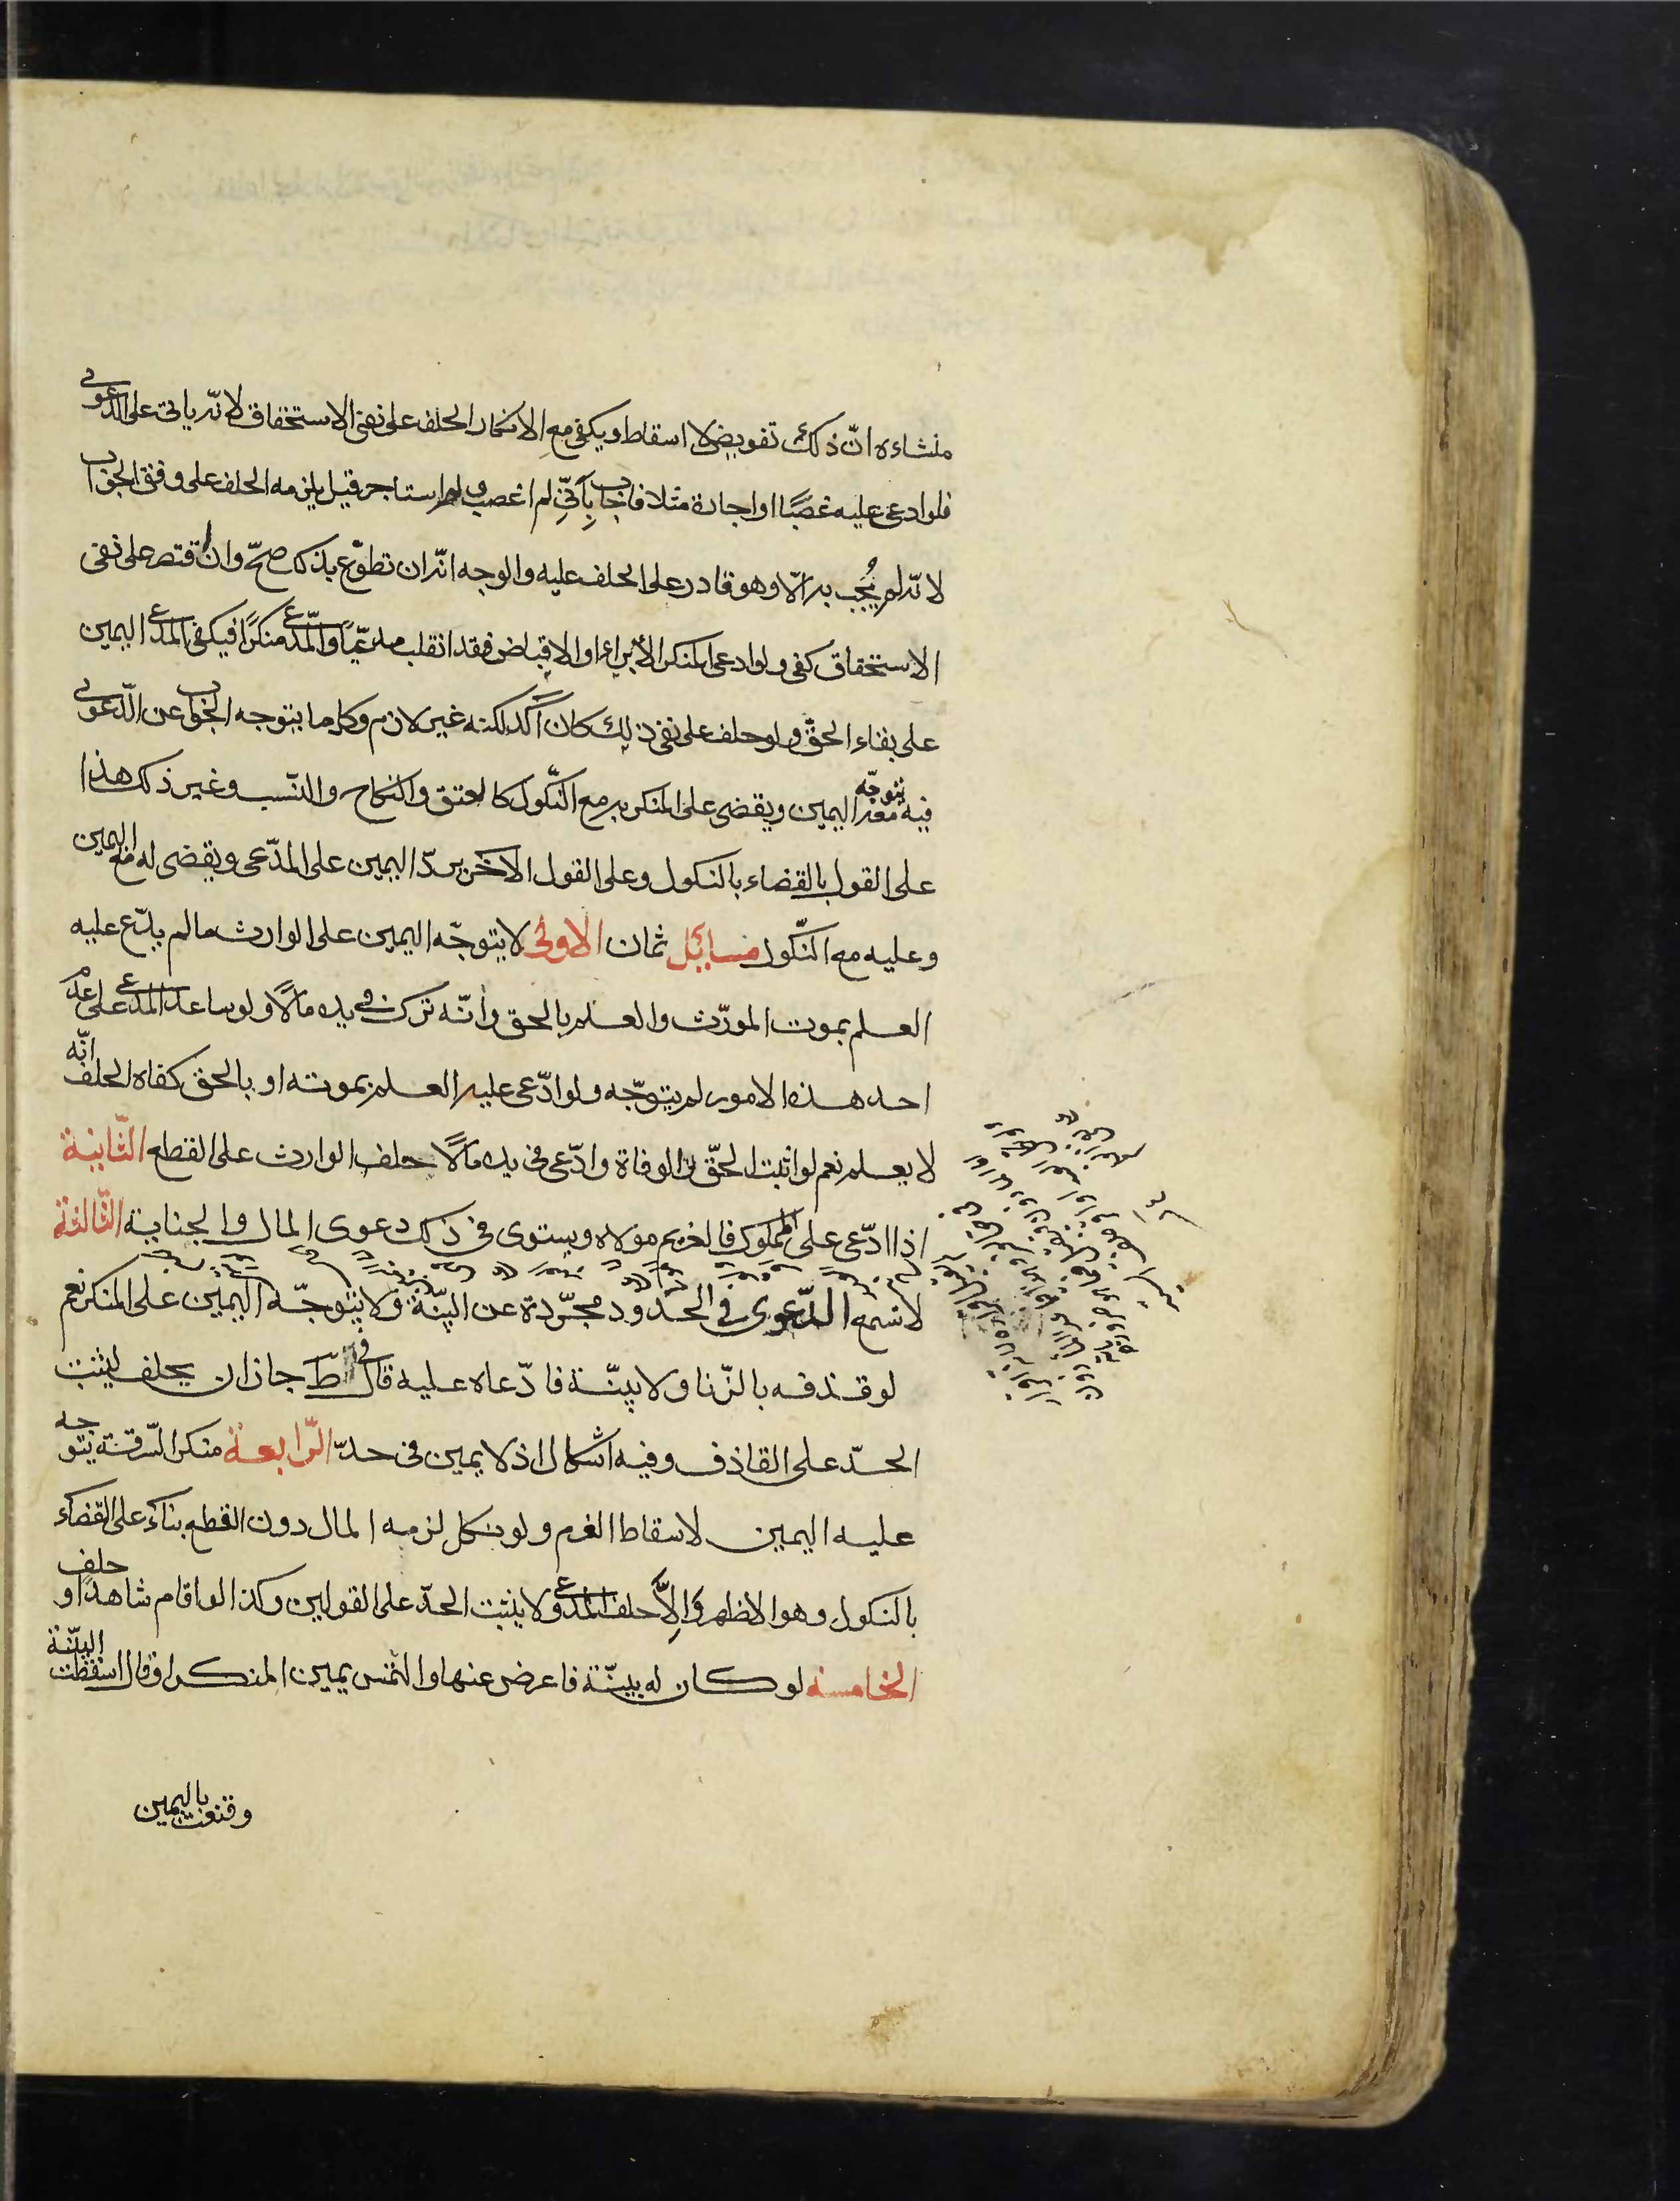 منشاءه انّ ذلك تفويض لا اسقاط ويكفى مع الانكار الحلف على نفى الاستحقاق لانّه ياتى على الدعوى
فلو ادعى عليه غصبًا او اجارة مثلا فاجاب بأنّى لم اغصب ولم استاجر قيل يلزمه الحلف على وفق الجواب
لانّه لم يُجب به الّا وهو قادر على الحلف عليه والوجه انّه ان تطوّع بذلك صحّ وان اقتصر على نفى
الاستحقاق كفى ولو ادعى المنكر الأبراء او الاقباض فقد انقلب مدّعيًا والمدّعى منكرًا فيكفى المدعى اليمين
على بقاء الحقّ ولو حلف على نفى ذلك كان آكد لكنه غير لازم وكل ما يتوجه الجواب عن الدّعوى
فيه يتوجّه معه اليمين ويقضى على المنكر به مع النّكول كالعتق والنكاح والنّسب وغير ذلك هذا
على القول بالقضاء بالنكول وعلى القول الآخر يردّ اليمين على المدّعى ويقضى له مع اليمين
وعليه مع النّكول مسائل ثمان الاولى لا يتوجّه اليمين على الوارث ما لم يدّع عليه
العلم بموت المورّث والعلم بالحق وأنّه ترك فى يده مالًا ولو ساعد المدعى على عدم
احد هذه الامور لم يتوجّه ولو ادّعى عليه العلم بموته او بالحق كفاه الحلف انّه
لا يعلم نعم لو اثبت الحقّ والوفاة وادّعى فى يده مالًا حلف الوارث على القطع الثّانية
اذا ادّعى على المملوك فالغريم مولاه ويستوى فى ذلك دعوى المال والجناية الثّالثة
لا تسمع الدّعوى فى الحدود مجرّدة عن البيّنة ولا يتوجّه اليمين على المنكر نعم
لو قذفه بالزّنا ولا بيّنة فادّعاه عليه قال فى ط جاز ان يحلف ليثبت
الحدّ على القاذف وفيه اشكال اذ لا يمين فى حدّ الرّابعة منكر السّرقة يتوجه
عليه اليمين لاسقاط الغرم ولو نكل لزمه المال دون القطع بناءً على القضاء
بالنكول وهو الاظهر وإلّا حلف المدّعى ولا يثبت الحدّ على القولين وكذا لو اقام شاهدًا و حلف
الخامسة لو كان له بيّنة فاعرض عنها والتمس يمين المنكر او قال اسقطت البيّنة
وقنعت باليمين